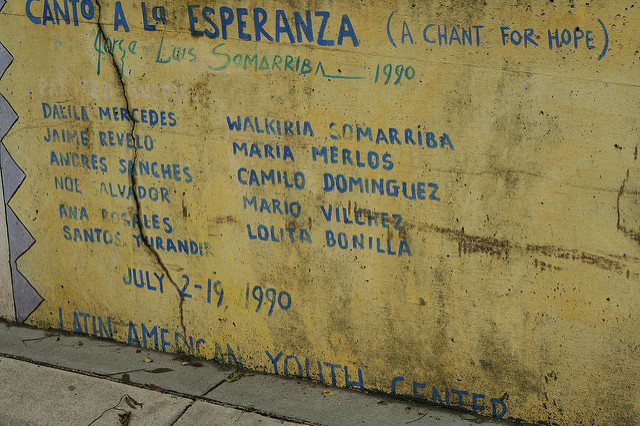 CANTO A La ESPERANZA (A CHANT FOR HOPE)
Jorge Luis SOMARRIBA 1990
DALILA MERCEDES
JAIME REVELO
ANDRES SANCHES
NOE SALVADOR
ANA ROSALES
SANTOS
WALKIRIA SOMARRIBA
MARIA MERLOS
CAMILO DOMINGUEZ
MARIO VILLHEZ
LOLITA BONILLA
JULY 2-19, 1990
LATIN AMERICAN YOUTH CENTER